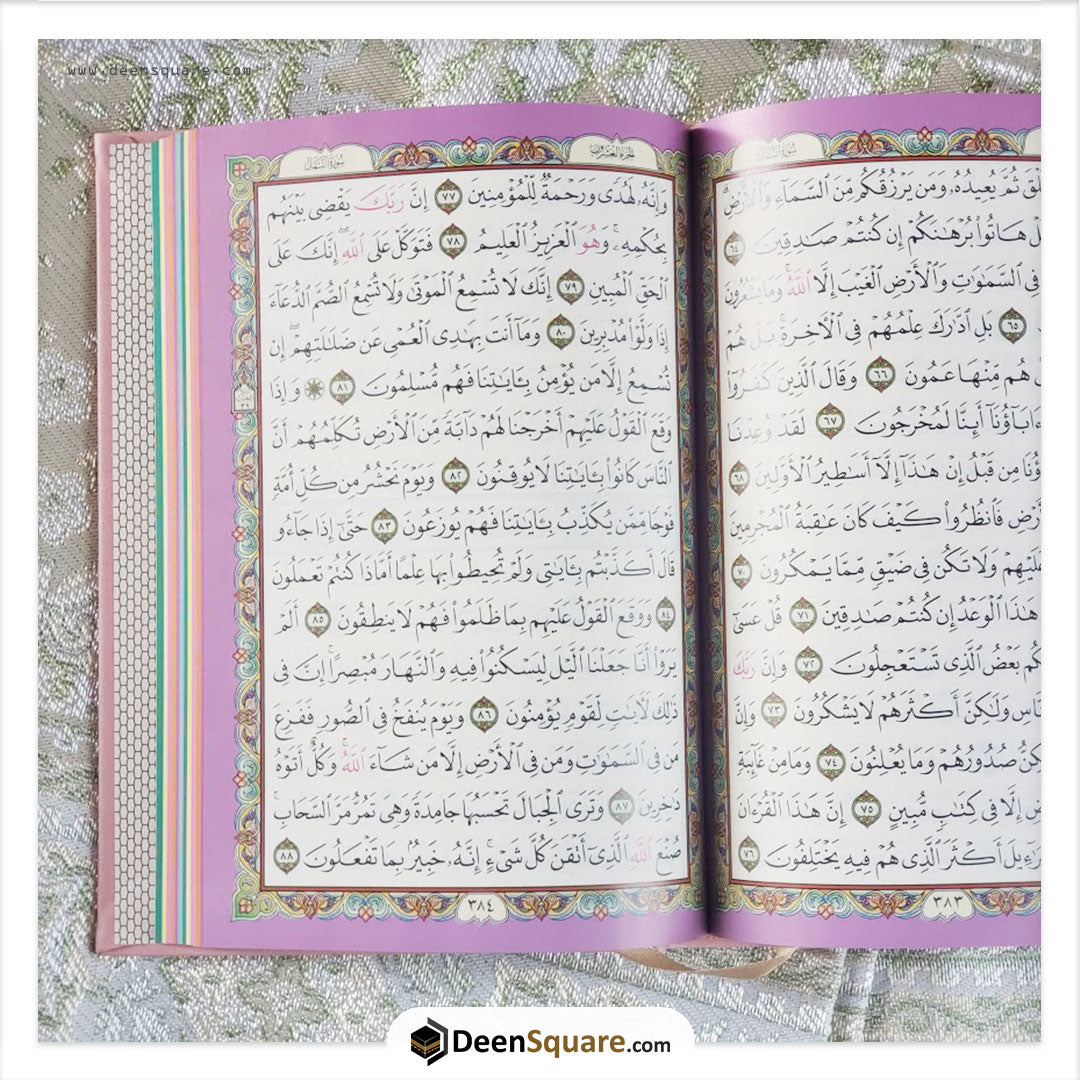 www.deensquare.com
سُورَةُ النَّمْلِ
ثُمَّ يُعِيدُهُۥ وَمَن يَرْزُقُكُم مِّنَ ٱلسَّمَآءِ وَٱلْأَرْضِ
هَاتُوا۟ بُرْهَـٰنَكُمْ إِن كُنتُمْ صَـٰدِقِينَ ٦٤
فِى ٱلسَّمَـٰوَٰتِ وَٱلْأَرْضِ ٱلْغَيْبَ إِلَّا ٱللَّهُ ۚ وَمَا يَشْعُرُونَ
٦٥ بَلِ ٱدَّٰرَكَ عِلْمُهُمْ فِى ٱلْـَٔاخِرَةِ ۚ بَلْ هُمْ
هُم مِّنْهَا عَمُونَ ٦٦ وَقَالَ ٱلَّذِينَ كَفَرُوٓا۟
ءَابَآؤُنَآ أَئِنَّا لَمُخْرَجُونَ ٦٧ لَقَدْ وُعِدْنَا
مِن قَبْلُ إِنْ هَـٰذَآ إِلَّآ أَسَـٰطِيرُ ٱلْأَوَّلِينَ ٦٨
فَٱنظُرُوا۟ كَيْفَ كَانَ عَـٰقِبَةُ ٱلْمُجْرِمِينَ
عَلَيْهِمْ وَلَا تَكُن فِى ضَيْقٍ مِّمَّا يَمْكُرُونَ ٧٠
هَـٰذَا ٱلْوَعْدُ إِن كُنتُمْ صَـٰدِقِينَ ٧١ قُلْ عَسَىٰٓ
بَعْضُ ٱلَّذِى تَسْتَعْجِلُونَ ٧٢ وَإِنَّ رَبَّكَ
وَلَـٰكِنَّ أَكْثَرَهُمْ لَا يَشْكُرُونَ ٧٣ وَإِنَّ
صُدُورُهُمْ وَمَا يُعْلِنُونَ ٧٤ وَمَا مِنْ غَآئِبَةٍ
إِلَّا فِى كِتَـٰبٍ مُّبِينٍ ٧٥ إِنَّ هَـٰذَا ٱلْقُرْءَانَ
أَكْثَرَ ٱلَّذِى هُمْ فِيهِ يَخْتَلِفُونَ ٧٦
٣٨٣
الجُزْءُ العِشْرُونَ
سُورَةُ النَّمْلِ
وَإِنَّهُۥ لَهُدًى وَرَحْمَةٌ لِّلْمُؤْمِنِينَ ٧٧ إِنَّ رَبَّكَ يَقْضِى بَيْنَهُم
بِحُكْمِهِۦ ۚ وَهُوَ ٱلْعَزِيزُ ٱلْعَلِيمُ ٧٨ فَتَوَكَّلْ عَلَى ٱللَّهِ ۖ إِنَّكَ عَلَى
ٱلْحَقِّ ٱلْمُبِينِ ٧٩ إِنَّكَ لَا تُسْمِعُ ٱلْمَوْتَىٰ وَلَا تُسْمِعُ ٱلصُّمَّ ٱلدُّعَآءَ
إِذَا وَلَّوْا۟ مُدْبِرِينَ ٨٠ وَمَآ أَنتَ بِهَـٰدِى ٱلْعُمْىِ عَن ضَلَـٰلَتِهِمْ ۖ إِن
تُسْمِعُ إِلَّا مَن يُؤْمِنُ بِـَٔايَـٰتِنَا فَهُم مُّسْلِمُونَ ٨١ ۞ وَإِذَا
وَقَعَ ٱلْقَوْلُ عَلَيْهِمْ أَخْرَجْنَا لَهُمْ دَآبَّةً مِّنَ ٱلْأَرْضِ تُكَلِّمُهُمْ أَنَّ
ٱلنَّاسَ كَانُوا۟ بِـَٔايَـٰتِنَا لَا يُوقِنُونَ ٨٢ وَيَوْمَ نَحْشُرُ مِن كُلِّ أُمَّةٍ
فَوْجًا مِّمَّن يُكَذِّبُ بِـَٔايَـٰتِنَا فَهُمْ يُوزَعُونَ ٨٣ حَتَّىٰٓ إِذَا جَآءُو
قَالَ أَكَذَّبْتُم بِـَٔايَـٰتِى وَلَمْ تُحِيطُوا۟ بِهَا عِلْمًا أَمَّاذَا كُنتُمْ تَعْمَلُونَ
٨٤ وَوَقَعَ ٱلْقَوْلُ عَلَيْهِم بِمَا ظَلَمُوا۟ فَهُمْ لَا يَنطِقُونَ ٨٥ أَلَمْ
يَرَوْا۟ أَنَّا جَعَلْنَا ٱلَّيْلَ لِيَسْكُنُوا۟ فِيهِ وَٱلنَّهَارَ مُبْصِرًا ۚ إِنَّ فِى
ذَٰلِكَ لَـَٔايَـٰتٍ لِّقَوْمٍ يُؤْمِنُونَ ٨٦ وَيَوْمَ يُنفَخُ فِى ٱلصُّورِ فَفَزِعَ
مَن فِى ٱلسَّمَـٰوَٰتِ وَمَن فِى ٱلْأَرْضِ إِلَّا مَن شَآءَ ٱللَّهُ ۚ وَكُلٌّ أَتَوْهُ
دَٰخِرِينَ ٨٧ وَتَرَى ٱلْجِبَالَ تَحْسَبُهَا جَامِدَةً وَهِىَ تَمُرُّ مَرَّ ٱلسَّحَابِ ۚ
صُنْعَ ٱللَّهِ ٱلَّذِىٓ أَتْقَنَ كُلَّ شَىْءٍ ۚ إِنَّهُۥ خَبِيرٌۢ بِمَا تَفْعَلُونَ ٨٨
٣٨٤
DeenSquare.com